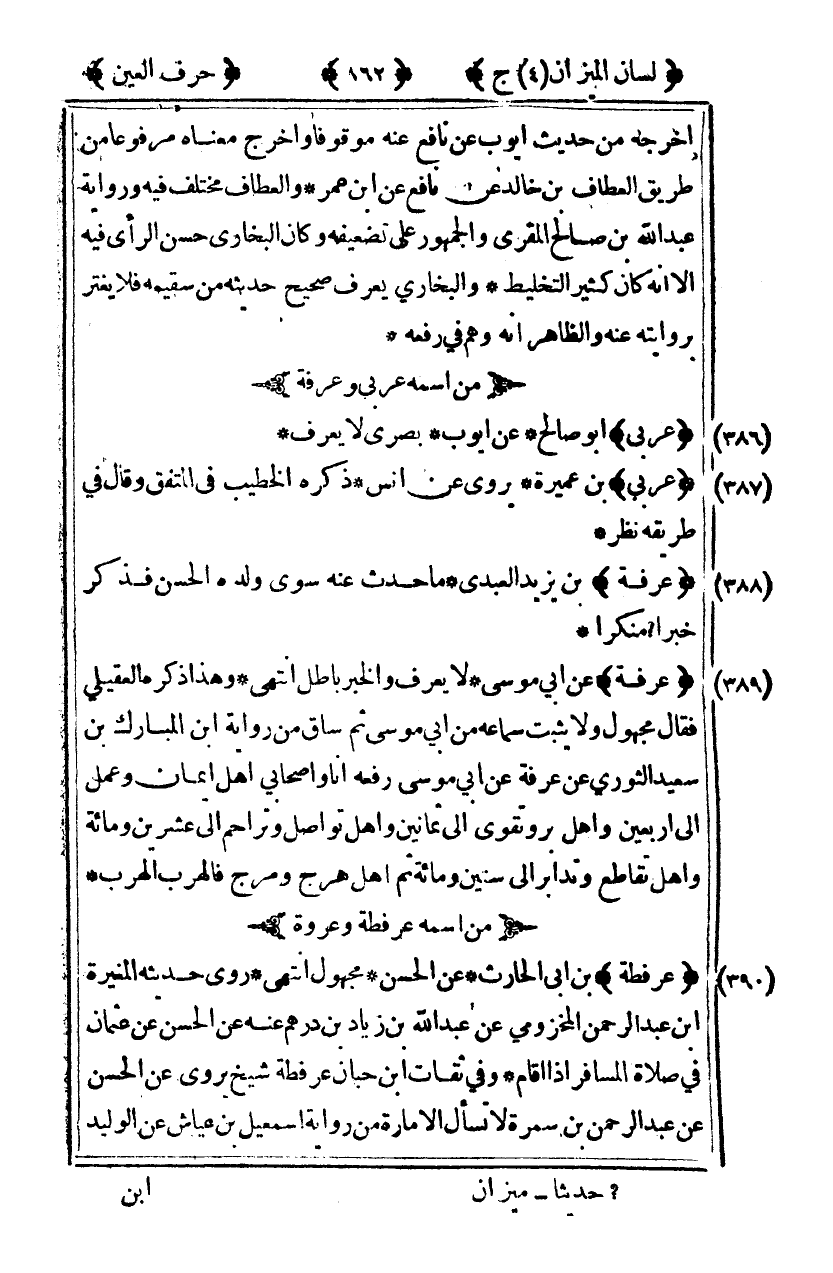 ﴿ لسان الميزان (٤) ج ﴾ ﴿ ١٦٢ ﴾ ﴿ حرف العين ﴾
اخرجه من حديث ايوب عن نافع عنه موقوفا واخرج معناه مرفوعا من
طريق العطاف بن خالد عن نافع عن ابن عمر * والعطاف مختلف فيه ورواية
عبدالله بن صالح المقرى والجمهور على تضعيفه وكان البخارى حسن الرأى فيه
الا انه كان كثير التخليط * والبخاري يعرف صحيح حديثه من سقيمه فلا يغتر
بروايته عنه والظاهر انه وهم في رفعه *
من اسمه عربي وعرفة
(٣٨٦) ﴿ عربي ﴾ ابو صالح * عن ايوب * بصرى لا يعرف *
(٣٨٧) ﴿ عربي ﴾ بن عميرة * يروى عن انس * ذكره الخطيب فى المتفق وقال في
طريقه نظر *
(٣٨٨) ﴿ عرفة ﴾ بن يزيد العبدى * ما حدث عنه سوى ولده الحسن فذكر
خبرا ? منكرا *
(٣٨٩) ﴿ عرفة ﴾ عن ابي موسى * لا يعرف والخبر باطل انتهى * وهذا ذكره العقيلي
فقال مجهول ولا يثبت سماعه من ابي موسى ثم ساق من رواية ابن المبارك بن
سعيد الثوري عن عرفة عن ابي موسى رفعه انا واصحابي اهل ايمان وعمل
الى اربعين واهل بر وتقوى الى ثمانين واهل تواصل وتراحم الى عشرين ومائة
واهل تقاطع وتدابر الى ستين ومائة ثم اهل هرج ومرج فالهرب الهرب *
من اسمه عرفطة وعروة
(٣٩٠) ﴿ عرفطة ﴾ بن ابى الحارث * عن الحسن * مجهول انتهى * روى حديثه المغيرة
ابن عبد الرحمن المخزومي عن عبدالله بن زياد بن درهم عنه عن الحسن عن عثمان
في صلاة المسافر اذا اقام * وفي ثقات ابن حبان عرفطة شيخ يروى عن الحسن
عن عبد الرحمن بن سمرة لا تسأل الامارة من رواية اسمعيل بن عياش عن الوليد
? حديثا ـ ميزان ابن